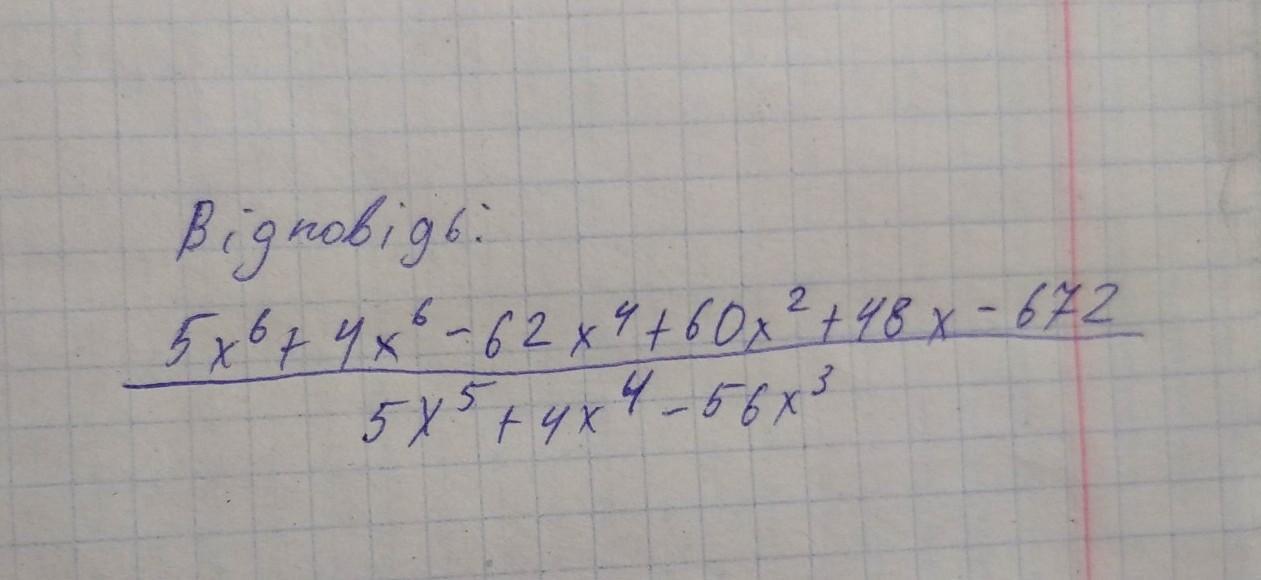 Відповідь:
5x⁶+4x⁶-62x⁴+60x²+48x-672
5x⁵+4x⁴-56x³